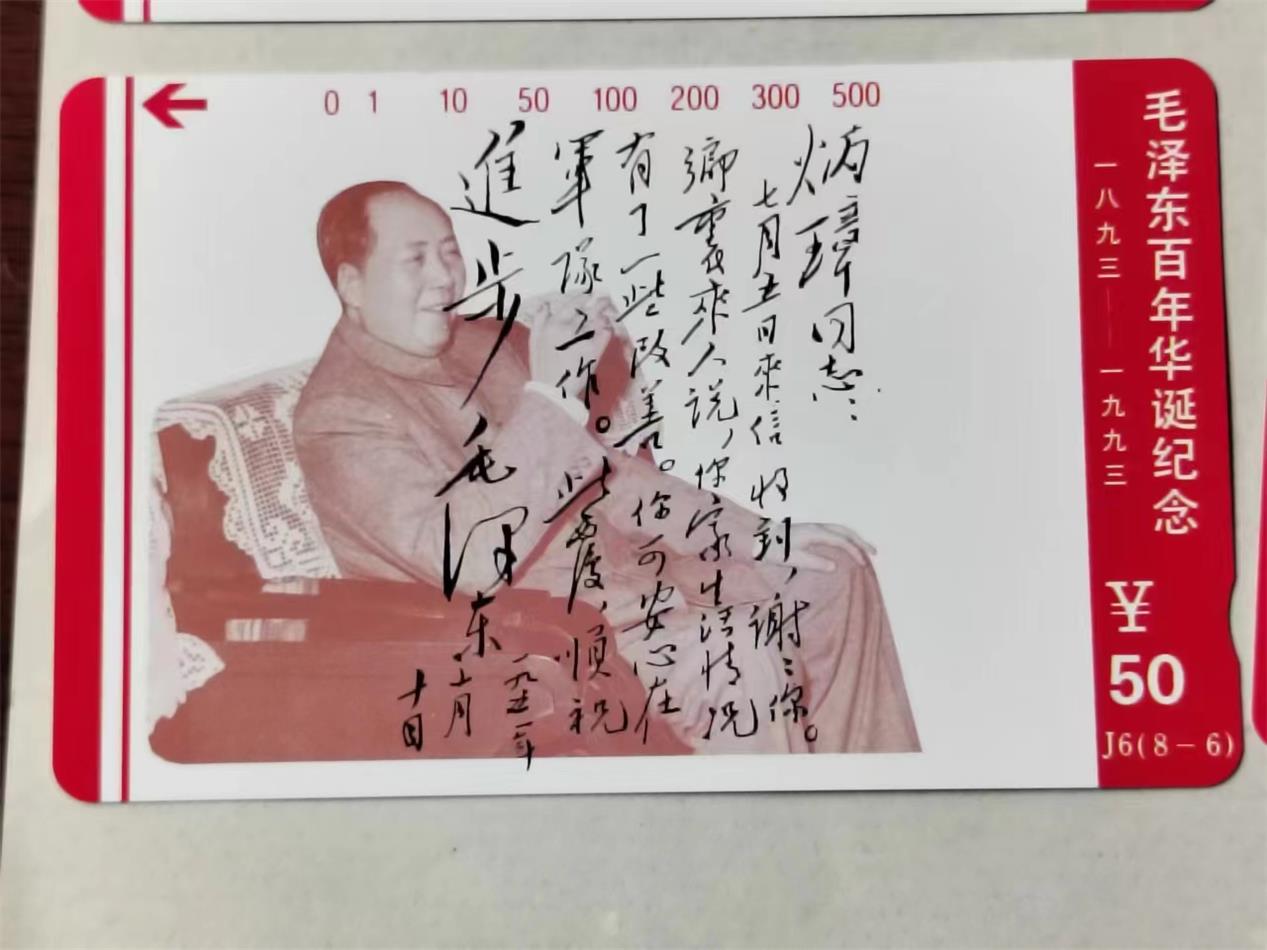 0 1 10 50 100 200 300 500
毛泽东百年华诞纪念
一八九三——一九九三
¥
50
J6(8-6)
炳璋同志：
七月五日來信收到，謝〻你。
鄉裏來人說，你家生活情况
有了一些改善。你可安心在
軍隊工作。此覆，順祝
進步 毛泽东
一九五一年
月
十日